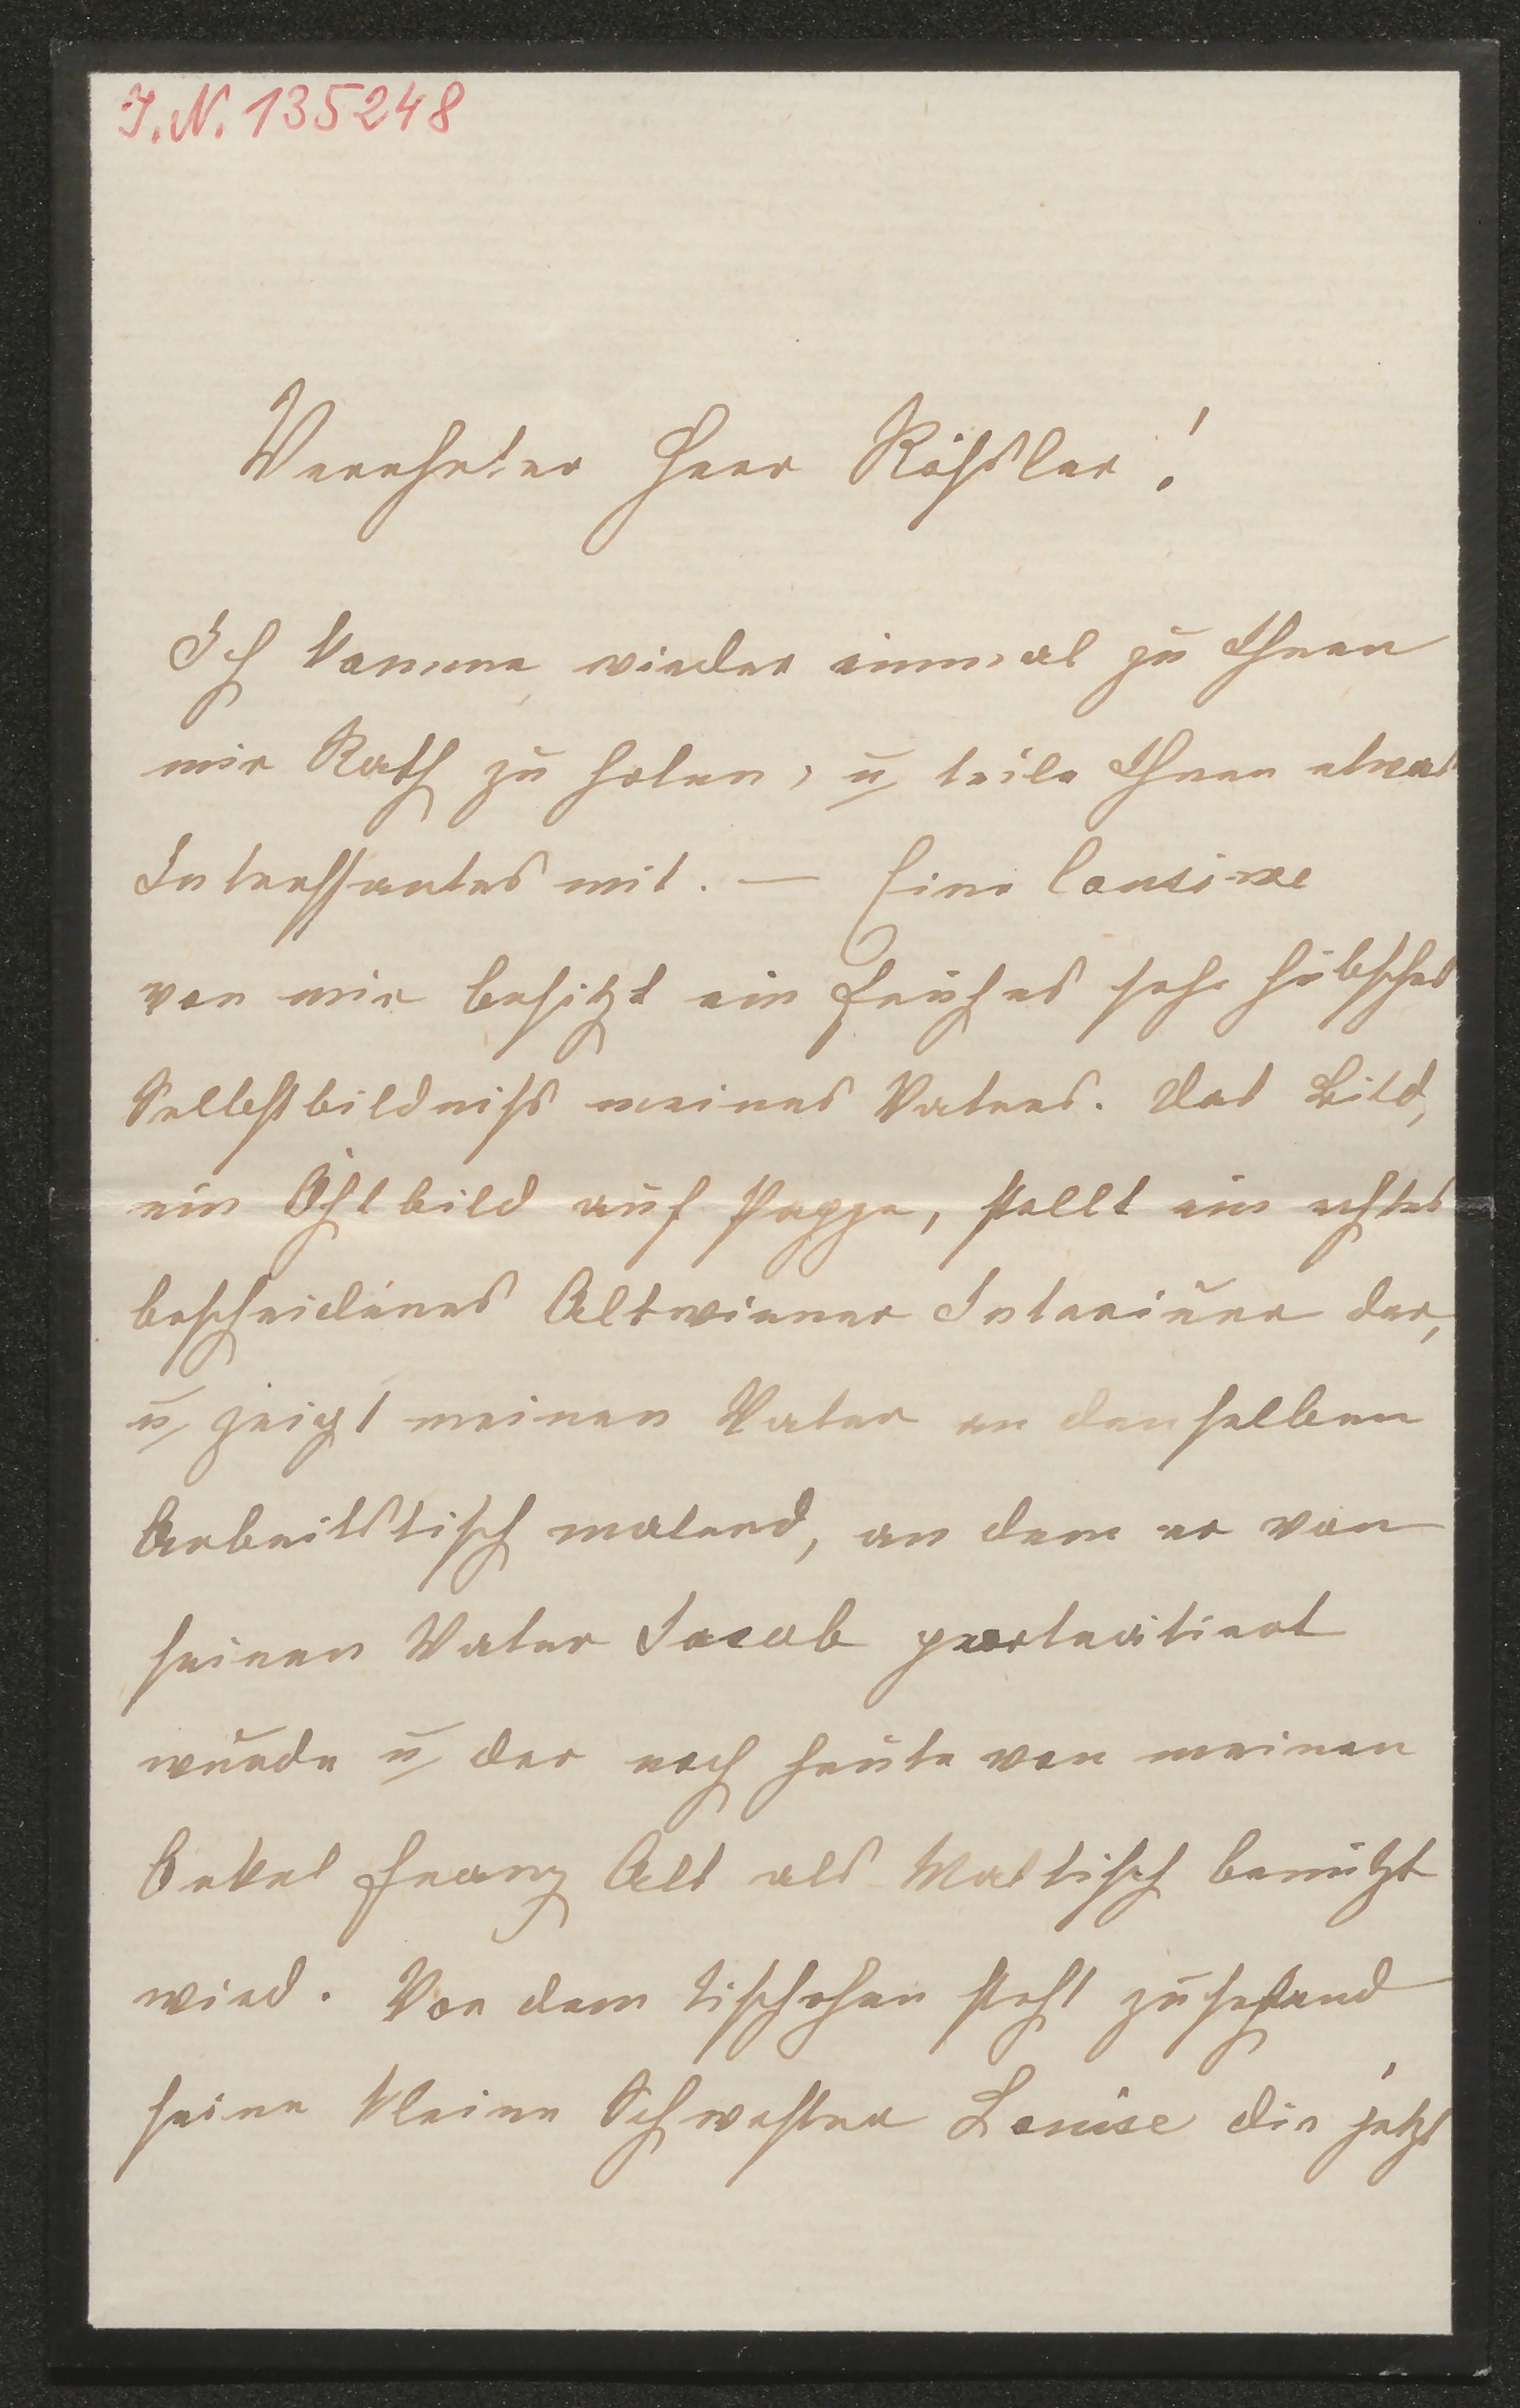 I. N. 135248
Verehrter Herr Rößler!
Ich komme wieder einmal zu Ihnen
mir Rath zu holen, u teile Ihnen etwas
Interessantes mit. — Eine Cousine
von mir besitzt ein frühes sehr hübsches
Selbstbildniß meines Vaters. Das Bild,
ein Öhlbild auf Pappe, stellt ein echtes
bescheidenes Altwiener Interieur dar,
u zeigt meinen Vater an denselben
Arbeitstisch malend, an dem er von
seinen Vater Jacob portraitiert
wurde u der noch heute von meinen
Onkel Franz Alt als Maltisch benützt
wird. Vor dem Tischchen steht zusehend
seine kleine Schwester Louise die jetzt